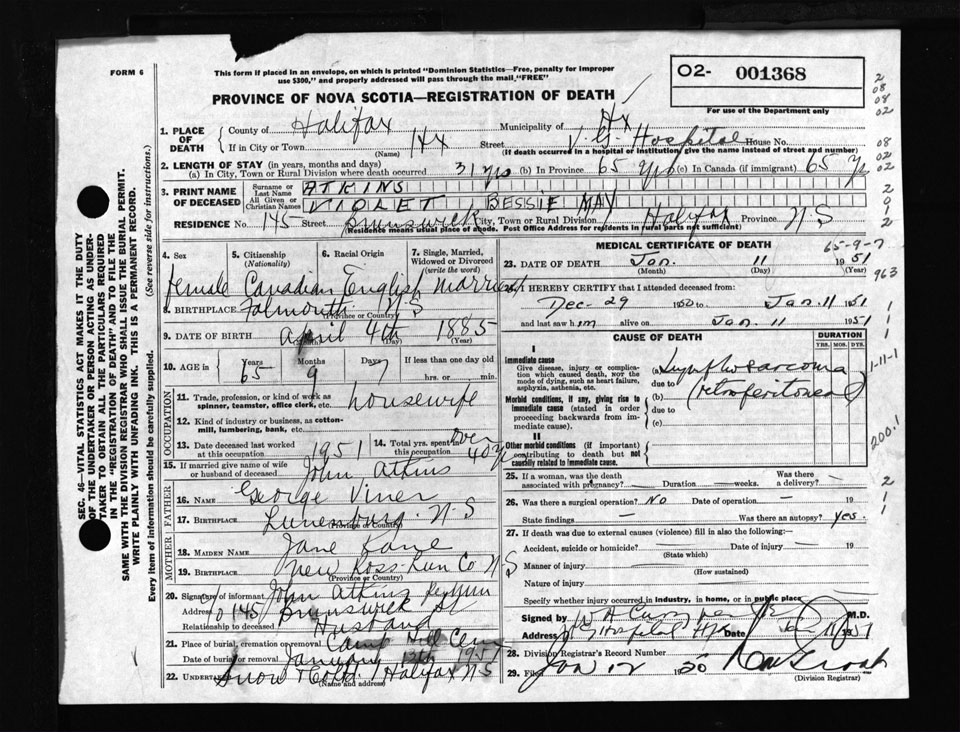 FORM 6
This form if placed in an envelope, on which is printed "Dominion Statistics—Free, penalty for improper
use $300," and properly addressed will pass through the mail, "FREE"
PROVINCE OF NOVA SCOTIA—REGISTRATION OF DEATH
O2- 001368
For use of the Department only
1. PLACE OF DEATH
County of Halifax Municipality of Hx
If in City or Town Hx Street V.G. Hospital House No.
(Name) (If death occurred in a hospital or institution, give the name instead of street and number)
2. LENGTH OF STAY (in years, months and days)
(a) In City, Town or Rural Division where death occurred 31 yrs (b) In Province 65 yrs (c) In Canada (if immigrant) 65 yr
3. PRINT NAME OF DECEASED
Surname or Last Name ATKINS
All Given or Christian Names VIOLET BESSIE MAY
RESIDENCE No. 145 Street Brunswick City, Town or Rural Division Halifax Province N S
(Residence means usual place of abode. Post Office Address for residents in rural parts not sufficient)
4. Sex 5. Citizenship (Nationality) 6. Racial Origin 7. Single, Married, Widowed or Divorced (write the word)
female Canadian English Married
8. BIRTHPLACE Falmouth N S
(Province or Country)
9. DATE OF BIRTH April 4th 1885
(Month) (Day) (Year)
10. AGE in Years Months Days If less than one day old
65 9 7 hrs. or min.
OCCUPATION
11. Trade, profession, or kind of work as spinner, teamster, office clerk, etc. housewife
12. Kind of industry or business, as cotton-mill, lumbering, bank, etc.
13. Date deceased last worked at this occupation 1951 14. Total yrs. spent in this occupation Over 40 yr
15. If married give name of wife or husband of deceased John Atkins
FATHER
16. NAME George Viner
17. BIRTHPLACE Lunenburg N-S
(Province or Country)
MOTHER
18. MAIDEN NAME Jane Lane
19. BIRTHPLACE New Ross-Lun Co N S
(Province or Country)
20. Signature of informant John Atkins
Address 145 Brunswick St
Relationship to deceased Husband
21. Place of burial, cremation or removal Camp Hill Cem
Date of burial or removal January 13th 1951
22. UNDERTAKER Snow & Co Ltd. Halifax N S
(Name and address)
MEDICAL CERTIFICATE OF DEATH 65-9-7
23. DATE OF DEATH Jan. 11 1951
(Month) (Day) (Year)
24. I HEREBY CERTIFY that I attended deceased from:
Dec-29 1950 to Jan. 11 1951
and last saw him alive on Jan. 11 1951
CAUSE OF DEATH
DURATION
YRS. MOS. DYS.
I
Immediate cause
Give disease, injury or complication which caused death, not the mode of dying, such as heart failure, asphyxia, asthenia, etc.
(a) Lymphosarcoma
due to
(b) (retroperitoneal)
Morbid conditions, if any, giving rise to immediate cause (stated in order proceeding backwards from immediate cause).
due to
(c)
II
Other morbid conditions (if important) contributing to death but not causally related to immediate cause.
25. If a woman, was the death associated with pregnancy? Duration — weeks. Was there a delivery? —
26. Was there a surgical operation? No Date of operation — 19
State findings — Was there an autopsy? Yes.
27. If death was due to external causes (violence) fill in also the following:—
Accident, suicide or homicide? Date of injury — 19
(State which)
Manner of injury
(How sustained)
Nature of injury
Specify whether injury occurred in industry, in home, or in public place
Signed by M.D.
Address V G Hospital Hfx Date Jan 11/1951
28. Division Registrar's Record Number
29. Filed Jan 12 19
(Division Registrar)
SEC. 46—VITAL STATISTICS ACT MAKES IT THE DUTY
OF THE UNDERTAKER OR PERSON ACTING AS UNDER-
TAKER TO OBTAIN ALL THE PARTICULARS REQUIRED
IN THE "REGISTRATION OF DEATH" AND TO FILE THE
SAME WITH THE DIVISION REGISTRAR WHO SHALL ISSUE THE BURIAL PERMIT.
WRITE PLAINLY WITH UNFADING INK. THIS IS A PERMANENT RECORD.
Every item of information should be carefully supplied. (See reverse side for instructions.)
2
08
08
02
08
02
02
2
9
1
2
963
1
1
1
1-11-1
200.1
2
1
1